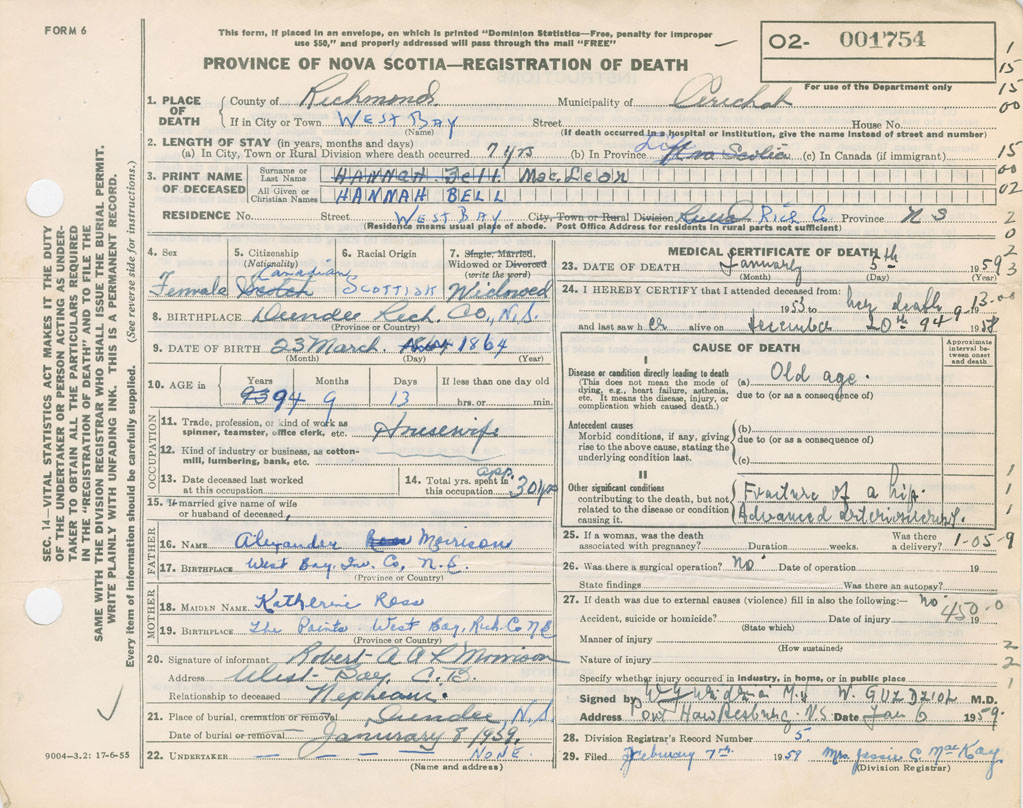 FORM 6
This form, if placed in an envelope, on which is printed "Dominion Statistics—Free, penalty for improper
use $50," and properly addressed will pass through the mail "FREE"
O2- 001754
For use of the Department only
PROVINCE OF NOVA SCOTIA—REGISTRATION OF DEATH
1. PLACE OF DEATH { County of Richmond Municipality of Arichat
If in City or Town WEST BAY Street House No.
(Name) (If death occurred in a hospital or institution, give the name instead of street and number)
2. LENGTH OF STAY (in years, months and days)
(a) In City, Town or Rural Division where death occurred 7 yrs (b) In Province Life Nova Scotia (c) In Canada (if immigrant)
3. PRINT NAME OF DECEASED { Surname or Last Name HANNAH Bell MacLean
All Given or Christian Names HANNAH BELL
RESIDENCE No. Street WEST BAY City, Town or Rural Division Rich Co Province N S
(Residence means usual place of abode. Post Office Address for residents in rural parts not sufficient)
4. Sex Female
5. Citizenship (Nationality) Canadian Scotch
6. Racial Origin SCOTTISH
7. Single, Married, Widowed or Divorced (write the word) Widowed
8. BIRTHPLACE Dundee Rich. Co., N.S.
(Province or Country)
9. DATE OF BIRTH 23 March 1864 1864
(Month) (Day) (Year)
10. AGE in Years Months Days If less than one day old
93 94 9 13 hrs. or min.
OCCUPATION
11. Trade, profession, or kind of work as spinner, teamster, office clerk, etc. Housewife
12. Kind of industry or business, as cotton-mill, lumbering, bank, etc.
13. Date deceased last worked at this occupation
14. Total yrs. spent in this occupation app. 30 yrs
15. If married give name of wife or husband of deceased
FATHER
16. NAME Alexander Ross Morrison
17. BIRTHPLACE West Bay, Inv. Co, N.S.
(Province or Country)
MOTHER
18. MAIDEN NAME Katherine Ross
19. BIRTHPLACE The Points West Bay, Rich. Co N S
(Province or Country)
20. Signature of informant Robert A A R Morrison
Address West Bay, C.B.
Relationship to deceased Nephew.
21. Place of burial, cremation or removal Dundee, N.S.
Date of burial or removal January 8 1959.
22. UNDERTAKER NONE
(Name and address)
MEDICAL CERTIFICATE OF DEATH
23. DATE OF DEATH January 5th 1959
(Month) (Day) (Year)
24. I HEREBY CERTIFY that I attended deceased from:
1953 to her death 19
and last saw her alive on December 20th 1958
CAUSE OF DEATH
Approximate interval between onset and death
I
Disease or condition directly leading to death (a) Old age.
(This does not mean the mode of dying, e.g., heart failure, asthenia, etc. It means the disease, injury, or complication which caused death.)
due to (or as a consequence of)
Antecedent causes
Morbid conditions, if any, giving rise to the above cause, stating the underlying condition last.
(b)
due to (or as a consequence of)
(c)
II
Other significant conditions
contributing to the death, but not related to the disease or condition causing it.
Fracture of a hip.
Advanced
25. If a woman, was the death associated with pregnancy? Duration weeks. Was there a delivery?
26. Was there a surgical operation? No Date of operation 19
State findings Was there an autopsy?
27. If death was due to external causes (violence) fill in also the following:— no
Accident, suicide or homicide? Date of injury 19
(State which)
Manner of injury
(How sustained)
Nature of injury
Specify whether injury occurred in industry, in home, or in public place
Signed by W. GUZDZIOL M.D.
Address Port Hawkesbury N.S Date Jan 6 1959.
28. Division Registrar's Record Number 5
29. Filed February 7th 1959 Mrs Jessie C. MacKay
(Division Registrar)
SEC. 14—VITAL STATISTICS ACT MAKES IT THE DUTY
OF THE UNDERTAKER OR PERSON ACTING AS UNDER-
TAKER TO OBTAIN ALL THE PARTICULARS REQUIRED
IN THE "REGISTRATION OF DEATH" AND TO FILE THE
SAME WITH THE DIVISION REGISTRAR WHO SHALL ISSUE THE BURIAL PERMIT.
WRITE PLAINLY WITH UNFADING INK. THIS IS A PERMANENT RECORD.
Every item of information should be carefully supplied. (See reverse side for instructions.)
9004—3.2: 17-6-55
1
15
15
00
15
00
02
2
0
2
3
13-00
94 9
1
1
1
1-05-9
450-0
2
2
1